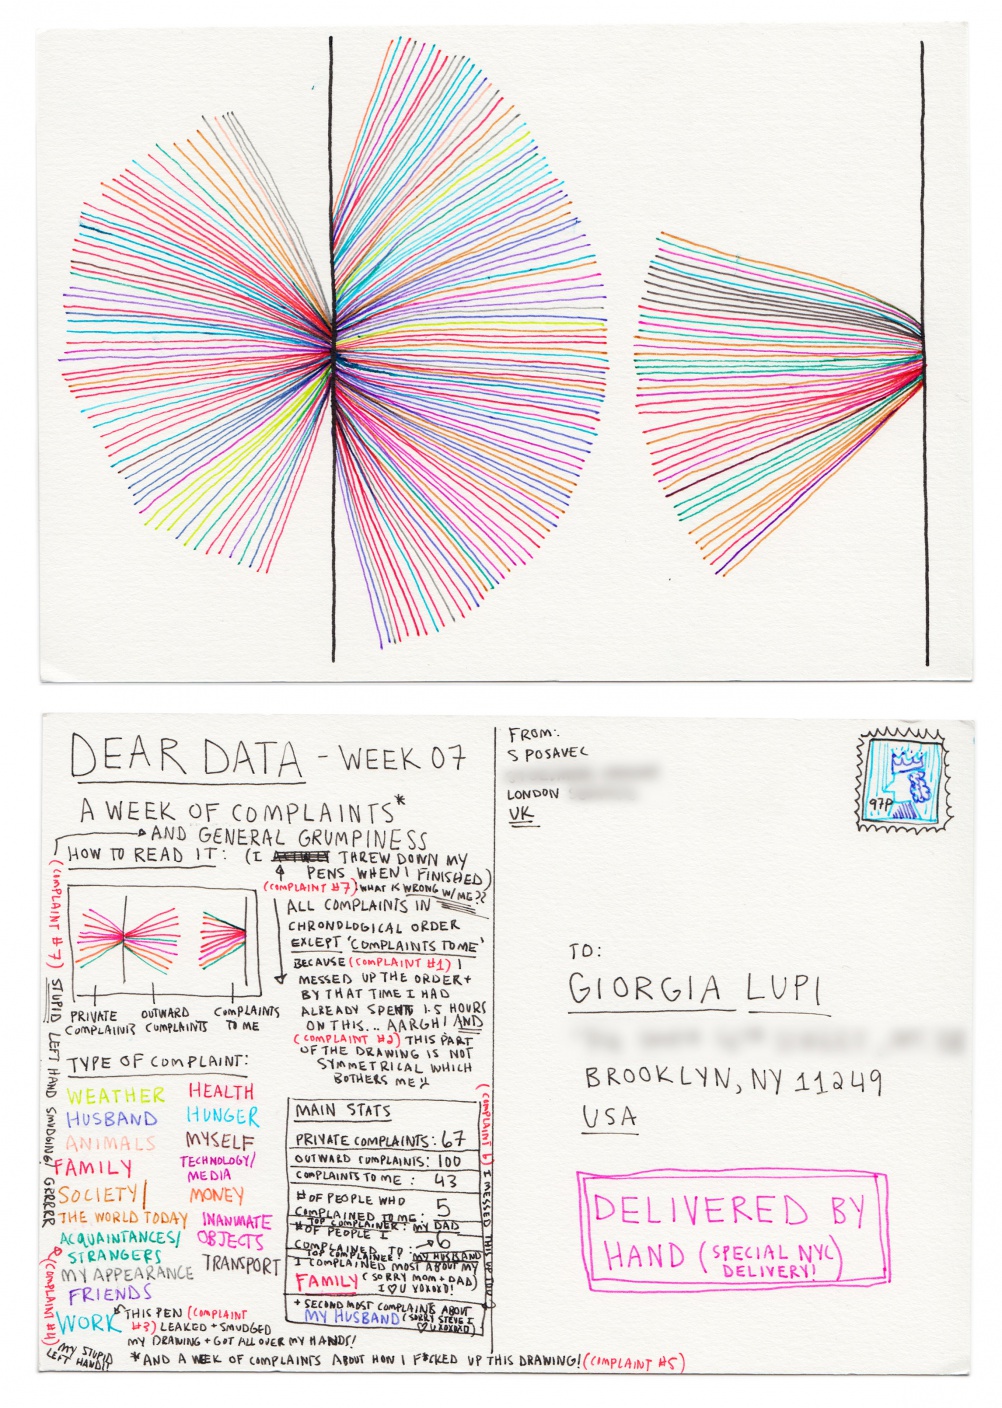 DEAR DATA - WEEK 07
A WEEK OF COMPLAINTS*
AND GENERAL GRUMPINESS
HOW TO READ IT: (I THREW DOWN MY
PENS WHEN I FINISHED)
(COMPLAINT #7) WHAT IS WRONG W/ME??
ALL COMPLAINTS IN
CHRONOLOGICAL ORDER
EXCEPT 'COMPLAINTS TO ME'
BECAUSE (COMPLAINT #1) I
MESSED UP THE ORDER +
BY THAT TIME I HAD
ALREADY SPENT 1.5 HOURS
ON THIS... AARGH! AND
(COMPLAINT #2) THIS PART
OF THE DRAWING IS NOT
SYMMETRICAL WHICH
BOTHERS ME!!
PRIVATE COMPLAINTS
OUTWARD COMPLAINTS
COMPLAINTS TO ME
(COMPLAINT #7) STUPID LEFT HAND SMUDGING! GRRRRR
TYPE OF COMPLAINT:
WEATHER
HUSBAND
ANIMALS
FAMILY
SOCIETY/
THE WORLD TODAY
ACQUAINTANCES/
STRANGERS
MY APPEARANCE
FRIENDS
WORK
HEALTH
HUNGER
MYSELF
TECHNOLOGY/
MEDIA
MONEY
INANIMATE
OBJECTS
TRANSPORT
THIS PEN (COMPLAINT
#3) LEAKED + SMUDGED
MY DRAWING + GOT ALL OVER MY HANDS!
(COMPLAINT #4)
MY STUPID
LEFT HAND!!
MAIN STATS
PRIVATE COMPLAINTS: 67
OUTWARD COMPLAINTS: 100
COMPLAINTS TO ME: 43
# OF PEOPLE WHO
COMPLAINED TO ME: 5
TOP COMPLAINER: MY DAD
# OF PEOPLE I
COMPLAINED TO: 6
TOP COMPLAINEE: MY HUSBAND
I COMPLAINED MOST ABOUT MY
FAMILY (SORRY MOM + DAD)
I ♡ U XOXOXO!
+ SECOND MOST COMPLAINTS ABOUT
MY HUSBAND (SORRY STEVE I
♡ U XOXOXO)
(COMPLAINT 6) I MESSED THIS UP TOO
*AND A WEEK OF COMPLAINTS ABOUT HOW I F*CKED UP THIS DRAWING! (COMPLAINT #5)
FROM:
S POSAVEC
LONDON
UK
97P
TO:
GIORGIA LUPI
BROOKLYN, NY 11249
USA
DELIVERED BY
HAND (SPECIAL NYC
DELIVERY!)